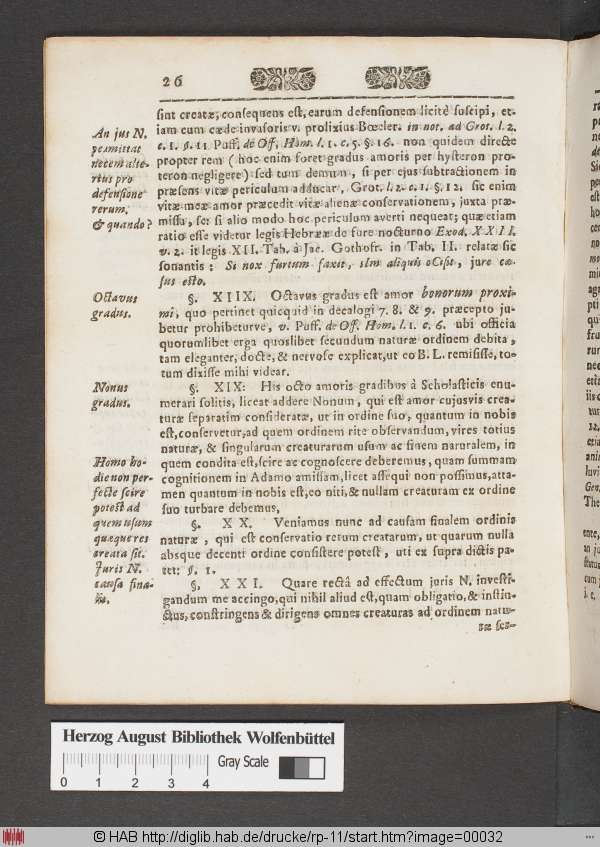 26
sint creatæ, consequens est, earum defensionem licitè suscipi, et-
iam cum cæde invasoris v. prolixius Bœcler. in not. ad Grot. l. 2.
c. 1. §. 11 Puff. de Off. Hom. l. 1. c. 5. §. 16. non quidem directe
propter rem ( hoc enim foret gradus amoris per hysteron pro-
teron negligere ) sed tum demum , si per ejus subtractionem in
præsens vitæ periculum adducar, Grot. l. 2. c. 1. §. 12. sic enim
vitæ meæ amor præcedit vitæ alienæ conservationem, juxta præ-
missa, sc: si alio modo hoc periculum averti nequeat; quæ etiam
ratio esse videtur legis Hebrææ de fure nocturno Exod. XXII.
v. 2. it legis XII. Tab. à Jac. Gothofr. in Tab. II. relatæ sic
sonantis : Si nox furtum faxit, sIm aliquis oCisit, jure cæ-
sus esto.
An jus N.
permittat
necem alte-
rius pro
defensione
rerum,
& quando?
§. XIIX. Octavus gradus est amor bonorum proxi-
mi, quo pertinet quicquid in decalogi 7. 8. & 9. præcepto ju-
betur prohibeturve, v. Puff. de Off. Hom. l. 1. c. 6. ubi officia
quorumlibet erga quoslibet secundum naturæ ordinem debita,
tam eleganter, docte, & nervose explicat, ut eo B. L. remisisse, to-
tum dixisse mihi videar.
Octavus
gradus.
§. XIX: His octo amoris gradibus à Scholasticis enu-
merari solitis, liceat addere Nonum, qui est amor cujusvis crea-
turæ separatim consideratæ, ut in ordine suo, quantum in nobis
est, conservetur, ad quem ordinem rite observandum, vires totius
naturæ, & singularum creaturarum usum ac finem naturalem, in
quem condita est, scire ac cognoscere deberemus, quam summam
cognitionem in Adamo amissam, licet assequi non possimus, atta-
men quantum in nobis est, co niti, & nullam creaturam ex ordine
suo turbare debemus,
Nonus
gradus.
Homo ho-
die non per-
fecte scire
potest ad
quem usum
quæque res
creata sit.
§. XX. Veniamus nunc ad causam finalem ordinis
naturæ , qui est conservatio rerum creatarum, ut quarum nulla
absque decenti ordine consistere potest, uti ex supra dictis pa-
tet: §. 1.
Juris N.
causa fina-
lis.
§, XXI. Quare rectâ ad effectum juris N. investi-
gandum me accingo, qui nihil aliud est, quam obligatio, & instin-
ctus, constringens & dirigens omnes creaturas ad ordinem natu-
ræ ses-
Herzog August Bibliothek Wolfenbüttel
Gray Scale
0 1 2 3 4
© HAB http://diglib.hab.de/drucke/rp-11/start.htm?image=00032